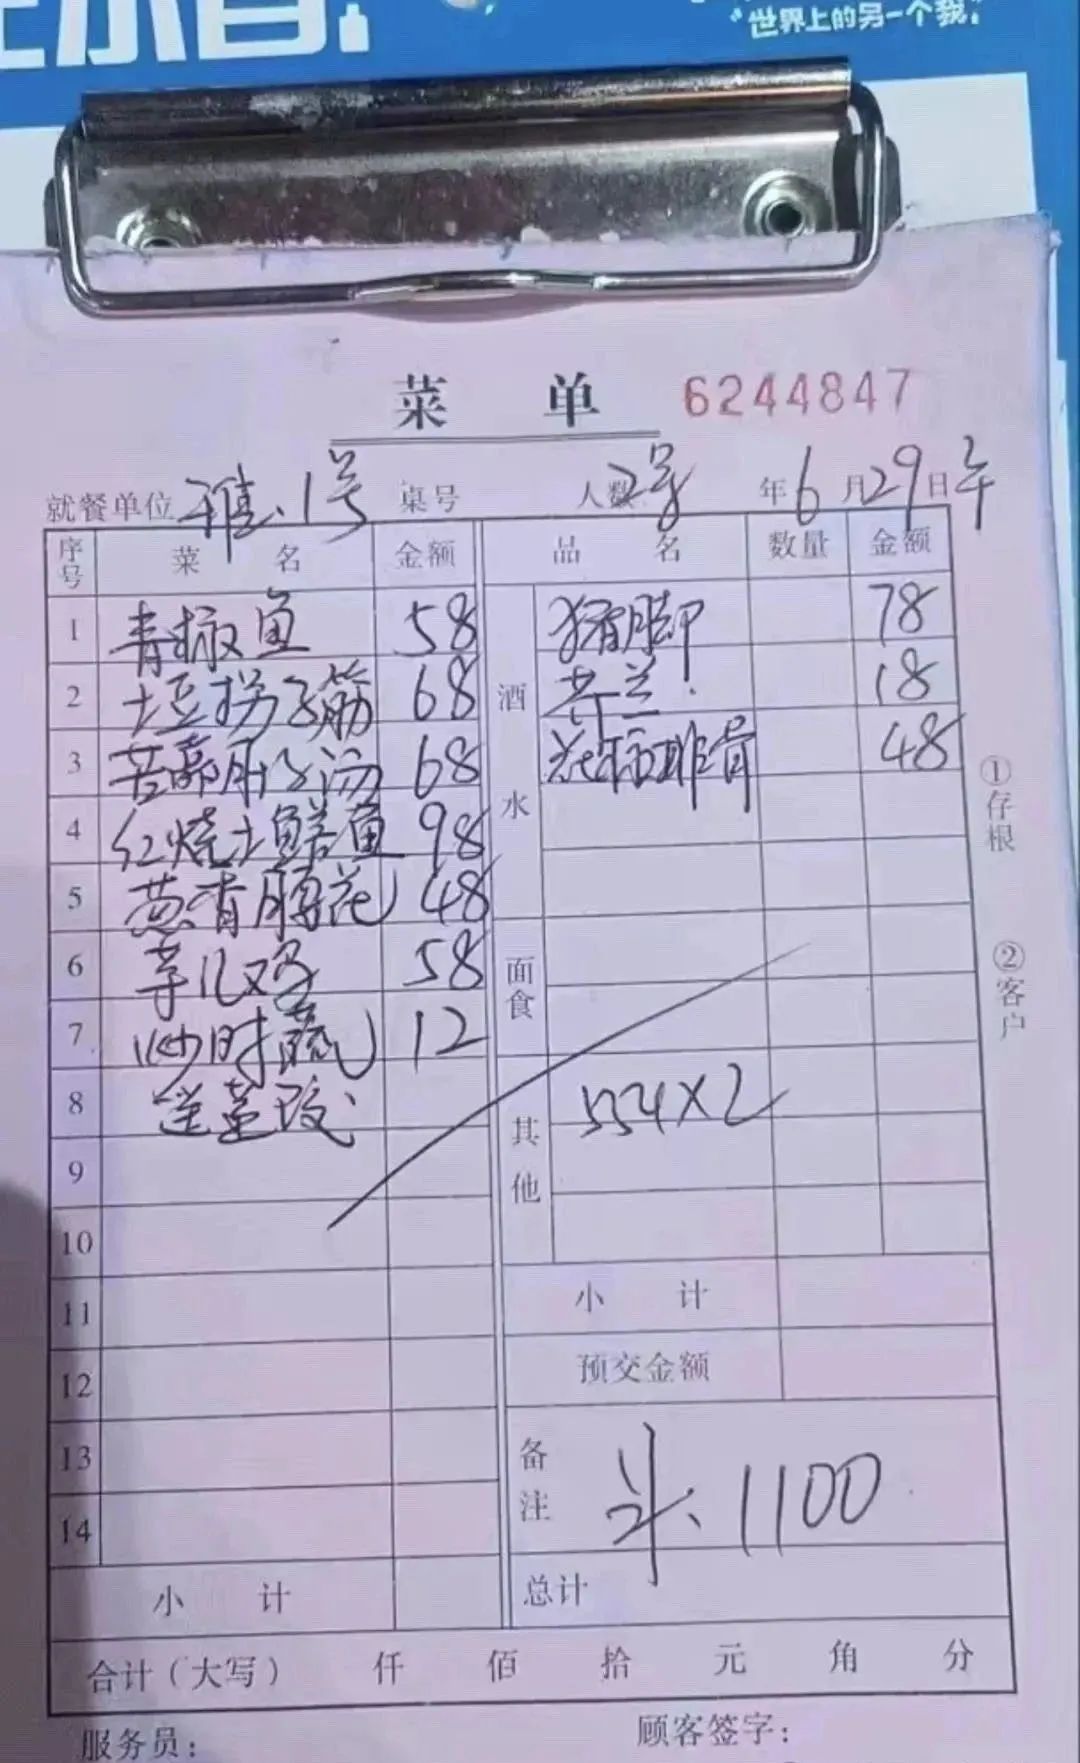 世界上的另一个我
菜 单 6244847
就餐单位 雅.1号 桌号 人数 2号 年 6 月 29 日 午
序号 菜 名 金额 品 名 数量 金额
1 青椒鱼 58 猪脚 78
2 土豆拐子筋 68 酒 芥兰 18
3 68 排骨 48
4 红烧土鲫鱼 98 水
5 葱香腰花 48
6 芋儿鸡 58 面食
7 炒时蔬 12
8 554×2
9 其他
10
11 小 计
12 预交金额
13 备注 1100
14
小 计 总计
合计(大写) 仟 佰 拾 元 角 分
服务员: 顾客签字:
①存根
②客户